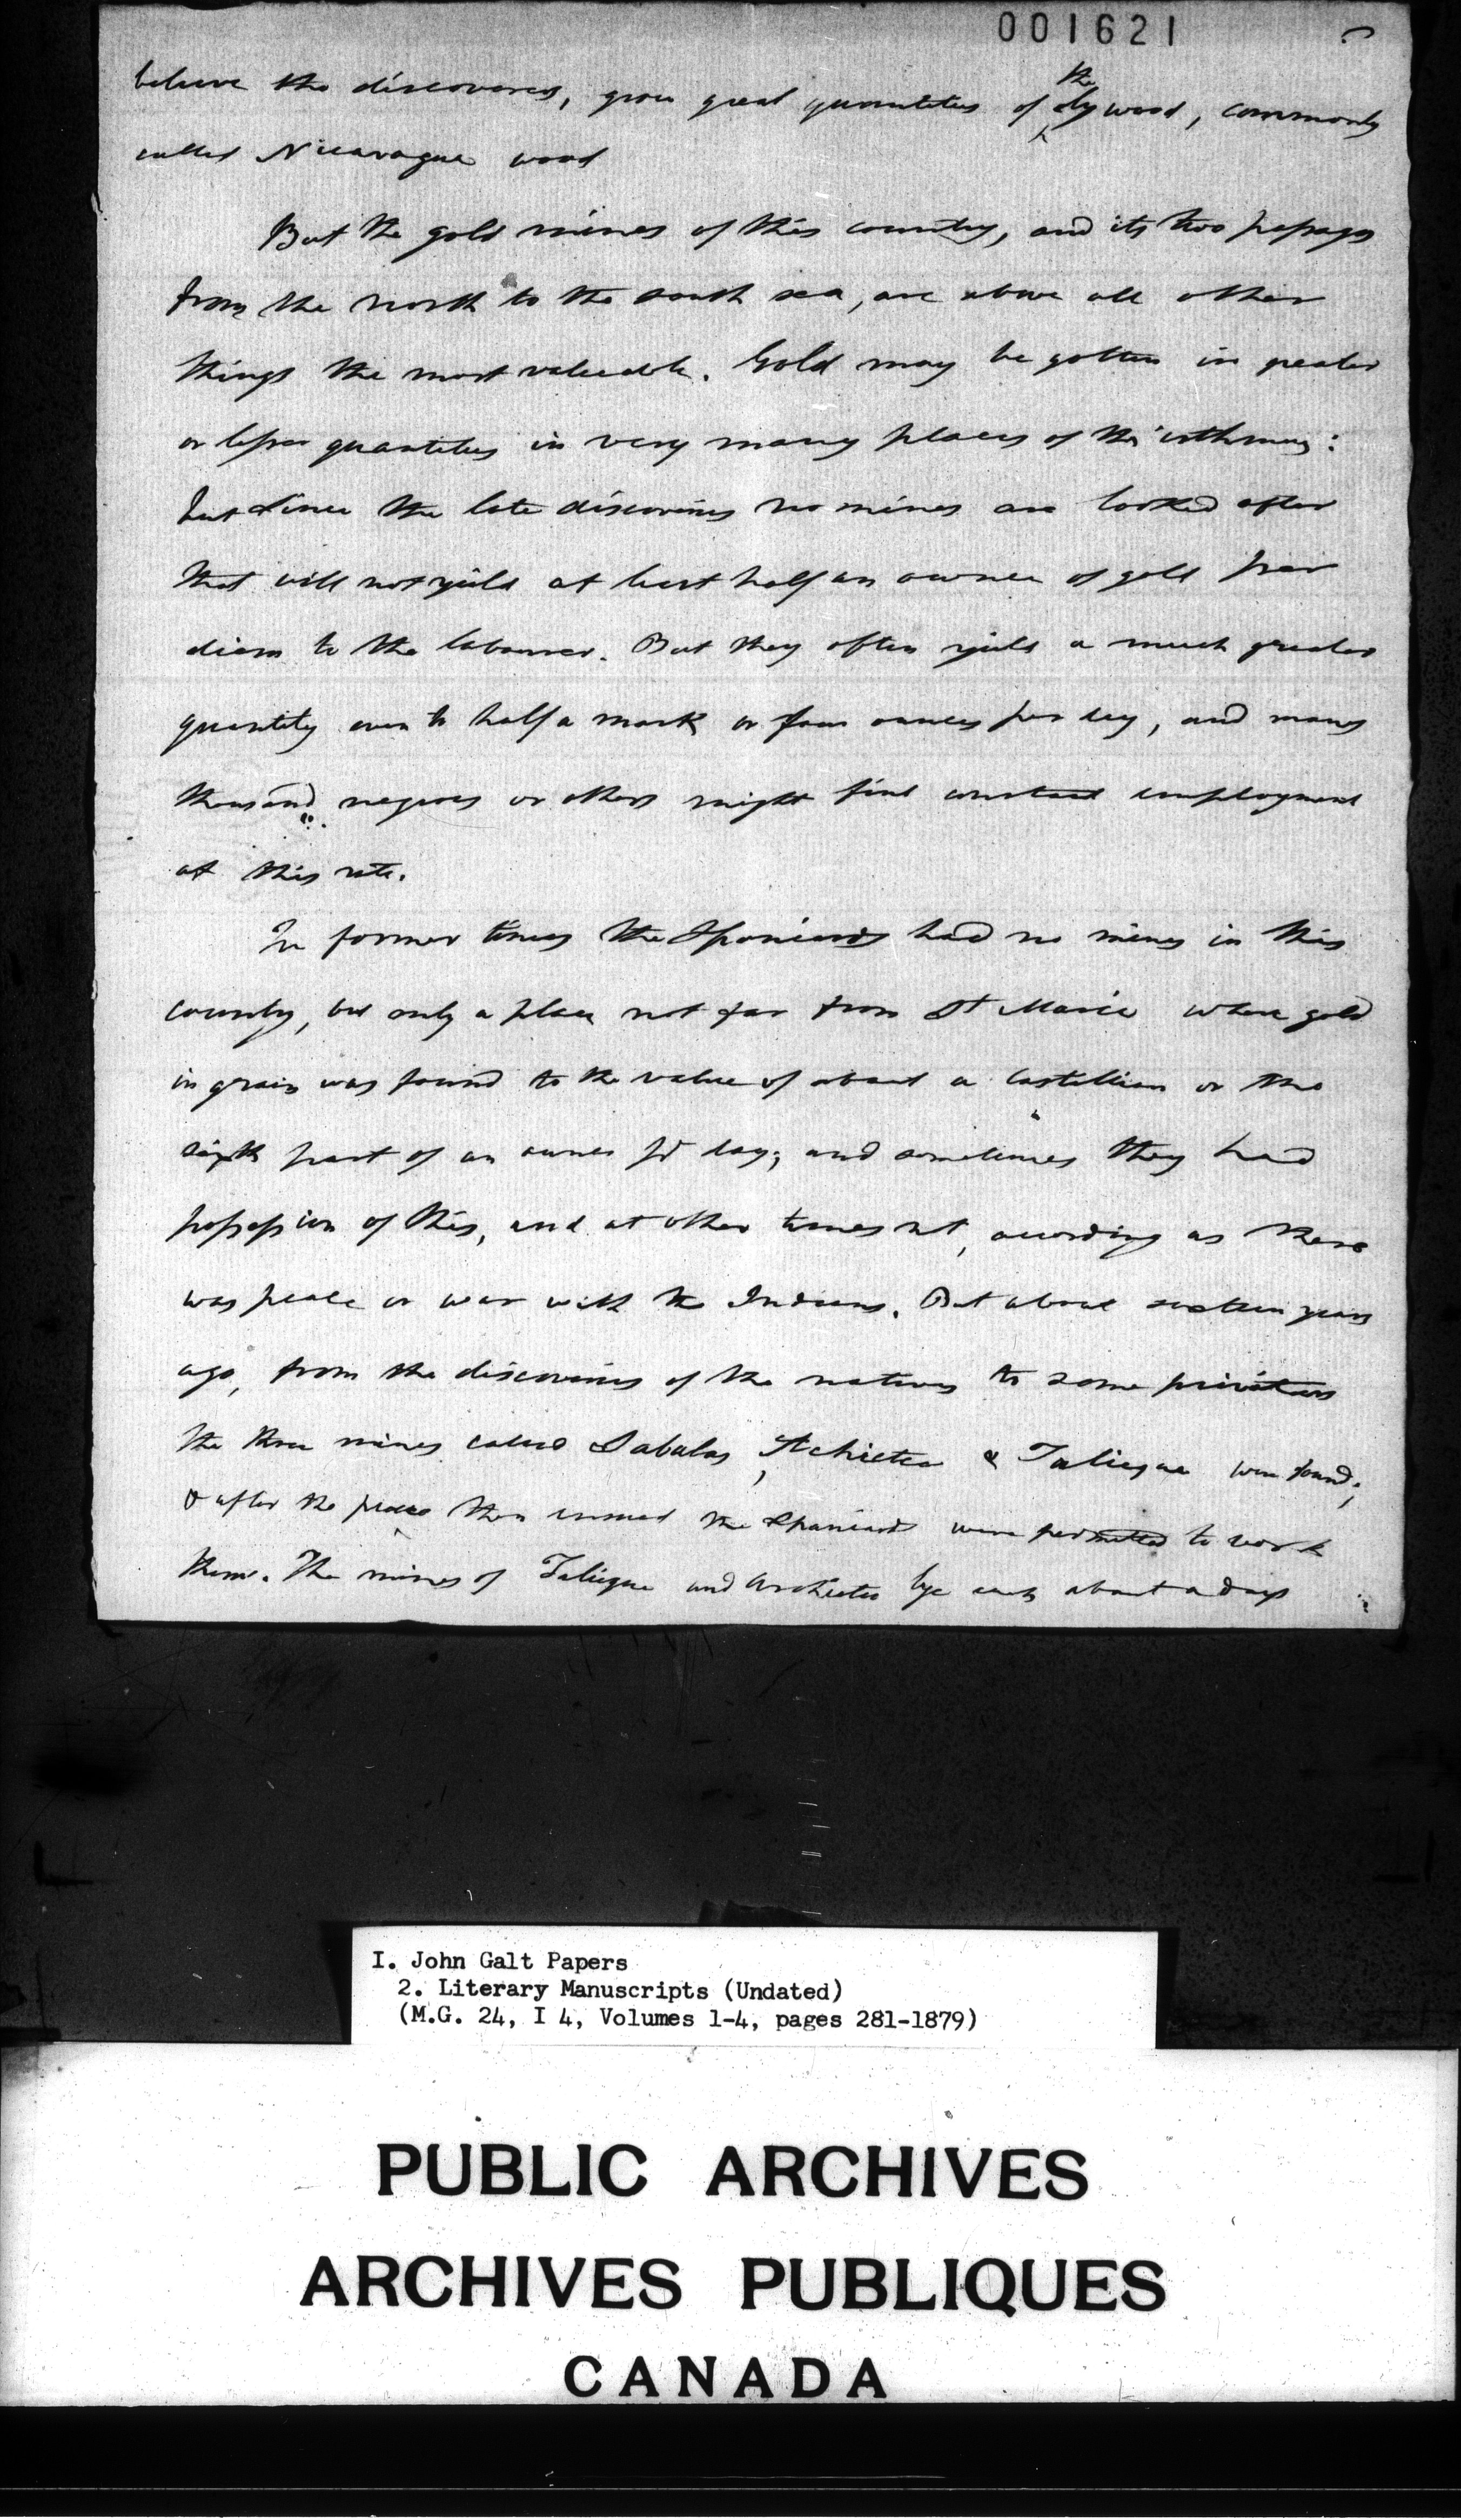 001621
believe the discoverers, grow great quantities of the dy wood, commonly
called Nicaragua wood
But the gold mines of this country, and its two passages
from the north to the south sea, are above all other
things the most valuable. Gold may be gotten in greater
or lesser quantities in very many places of this isthmus:
but since the late discoveries no mines are looked after
that will not yield at least half an ounce of gold per
diem to the labourer. But they often yield a much greater
quantity even to half a mark or four ounces per day, and many
thousand negroes or others might find constant employment
at this rate.
In former times the Spaniards had no mines in this
country, but only a place not far from St Maria where gold
in grain was found to the value of about a Castillian or the
sixth part of an ounce pr day; and sometimes they had
possession of this, and at other times not, according as there
was peace or war with the Indians. But about sixteen years
ago, from the discoveries of the natives to some privateers
the three mines called Sabalas, Achieten & Taliegua were found;
& after the peace then ensued the Spaniards were permitted to work
them. The mines of Taliegua and Archieten lye each about a days
I. John Galt Papers
2. Literary Manuscripts (Undated)
(M.G. 24, I 4, Volumes 1-4, pages 281-1879)
PUBLIC ARCHIVES
ARCHIVES PUBLIQUES
CANADA